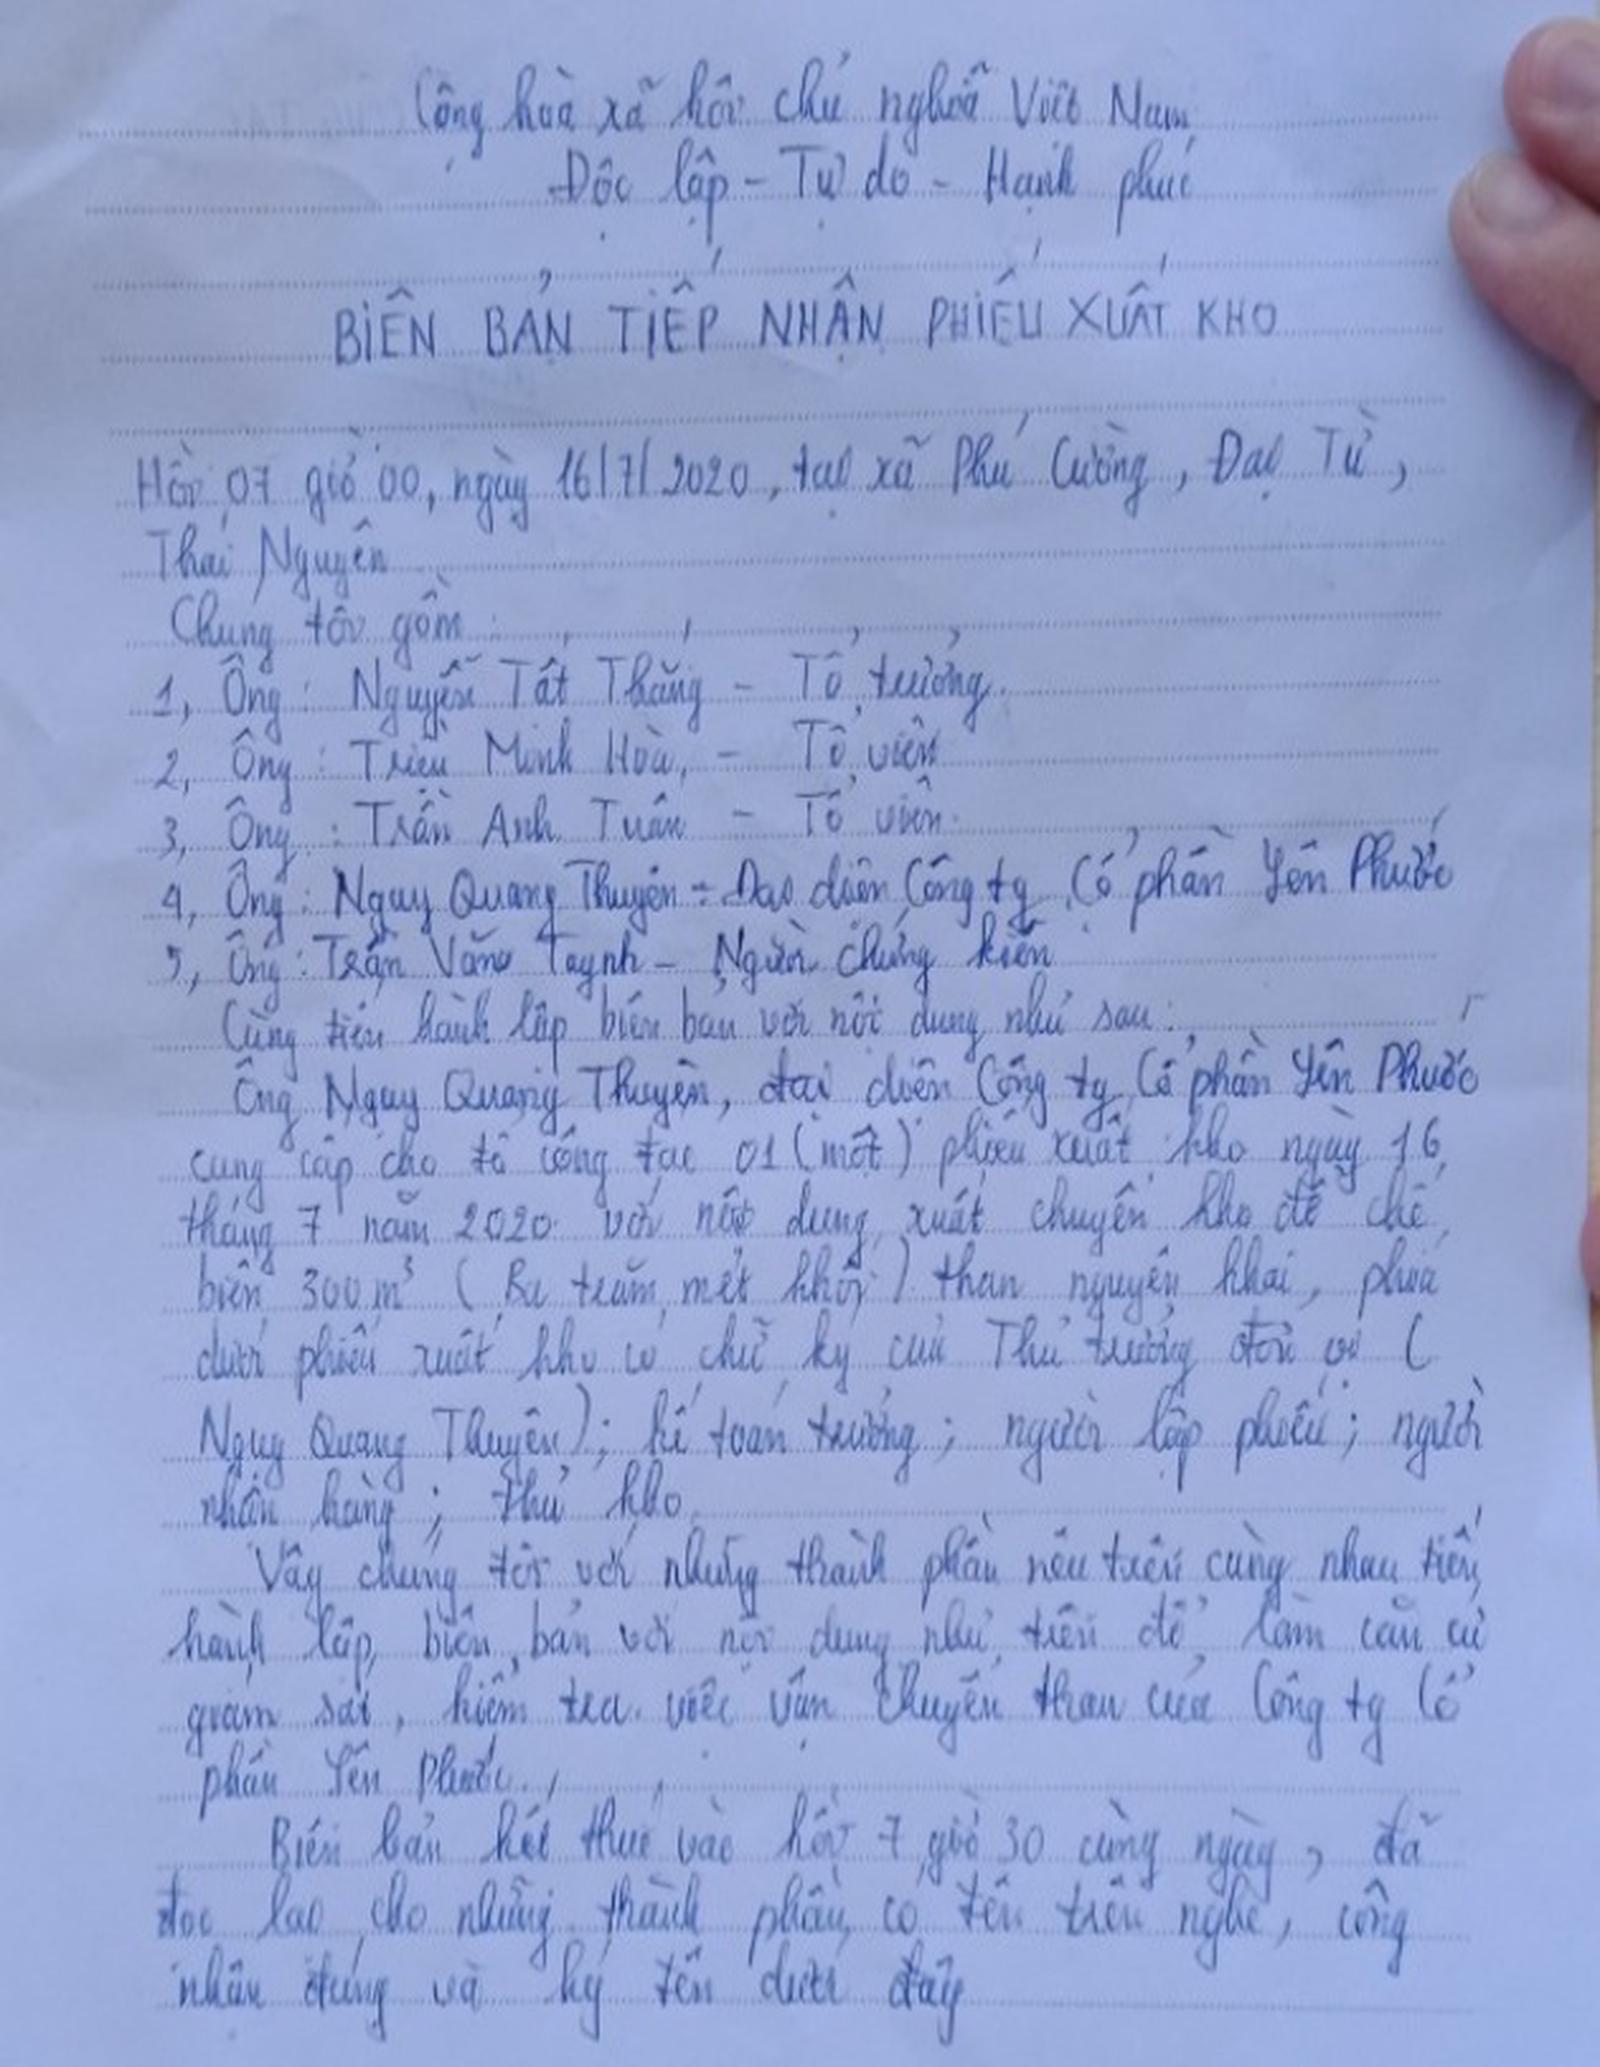 Cộng hoà xã hội chủ nghĩa Việt Nam
Độc lập - Tự do - Hạnh phúc
BIÊN BẢN TIẾP NHẬN PHIẾU XUẤT KHO
Hồi 07 giờ 00, ngày 16/7/2020, tại xã Phú Cường, Đại Từ,
Thái Nguyên
Chúng tôi gồm :
1, Ông : Nguyễn Tất Thắng - Tổ trưởng.
2, Ông : Triệu Minh Hoà, - Tổ viên
3, Ông : Trần Anh Tuấn - Tổ viên.
4, Ông : Ngụy Quang Thuyên - Đại diện Công ty Cổ phần Yên Phước
5, Ông : Trần Văn - Người chứng kiến
Cùng tiến hành lập biên bản với nội dung như sau :
Ông Ngụy Quang Thuyên, đại diện Công ty Cổ phần Yên Phước
cung cấp cho tổ công tác 01 (một) phiếu xuất kho ngày 16
tháng 7 năm 2020 với nội dung xuất chuyển kho để chế
biến 300 m³ ( Ba trăm mét khối ) than nguyên khai, phía
dưới phiếu xuất kho có chữ ký của Thủ trưởng đơn vị (
Ngụy Quang Thuyên); kế toán trưởng ; người lập phiếu ; người
nhận hàng ; thủ kho.
Vậy chúng tôi với những thành phần nêu trên cùng nhau tiến
hành lập biên bản với nội dung như trên để làm căn cứ
giám sát, kiểm tra việc vận chuyển than của Công ty Cổ
phần Yên Phước.
Biên bản kết thúc vào hồi 7 giờ 30 cùng ngày, đã
đọc lại cho những thành phần có tên trên nghe, công
nhận đúng và ký tên dưới đây